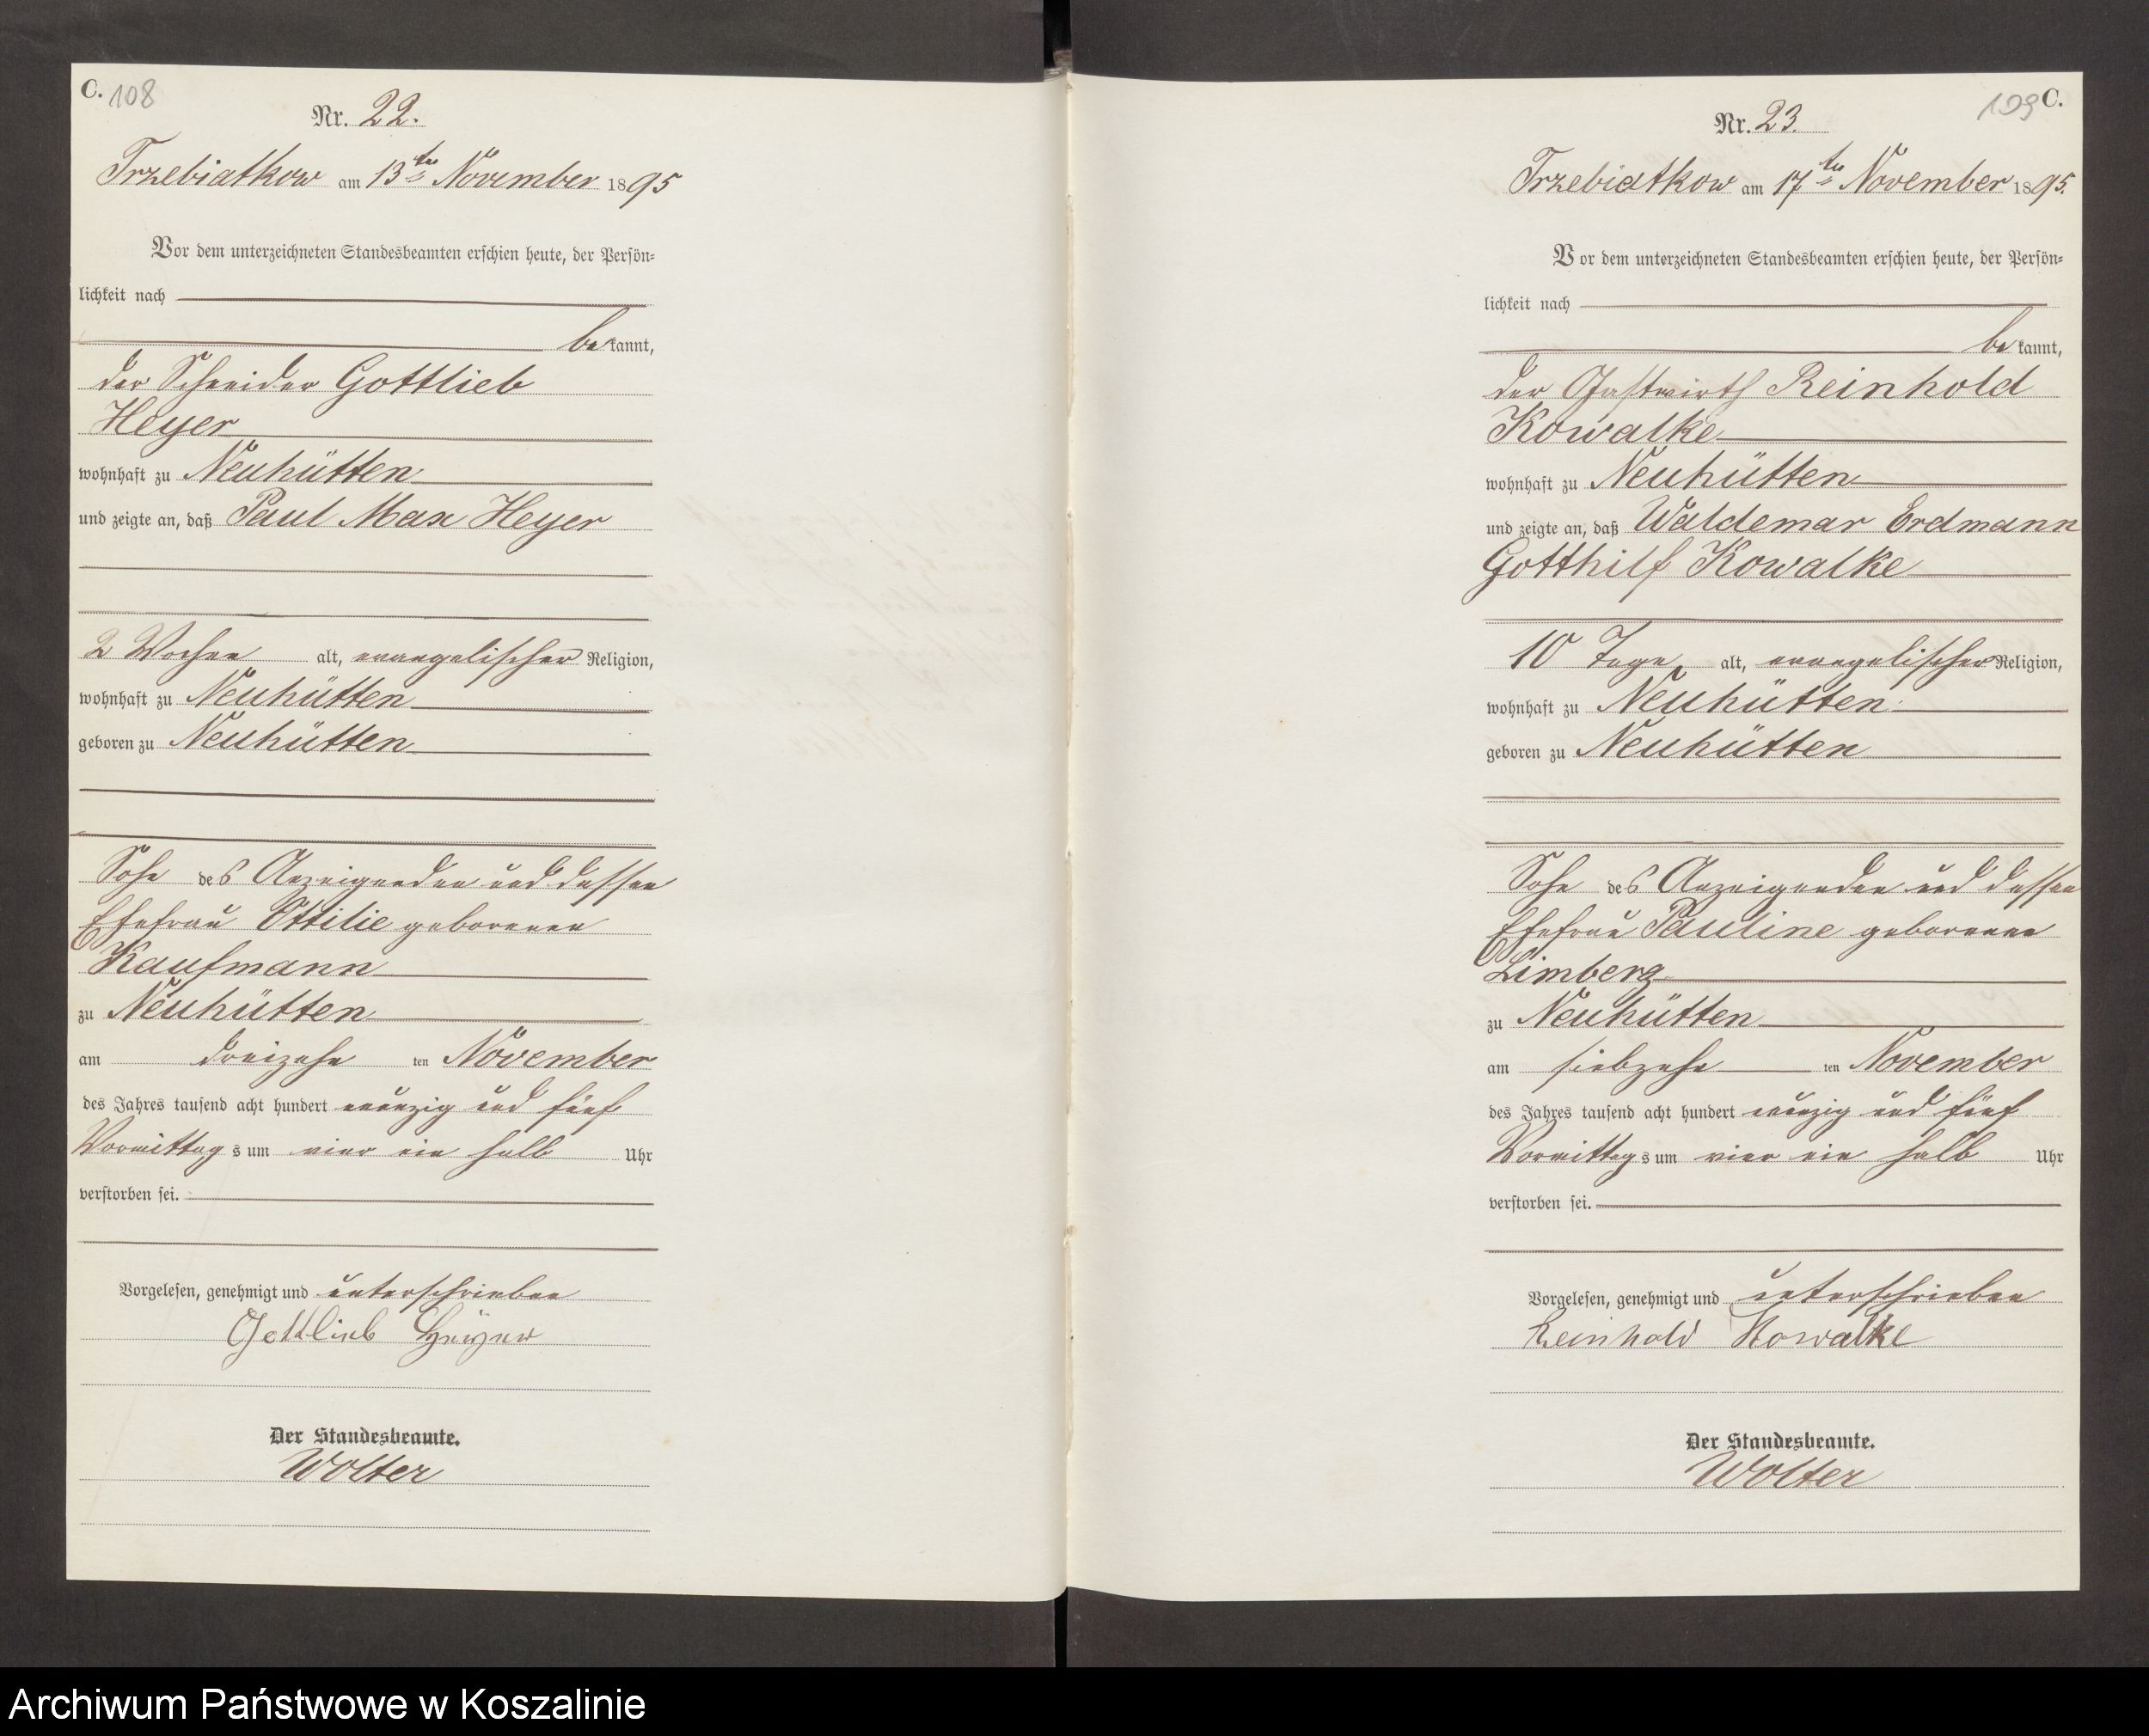 C. 108
Nr. 22.
Trzebiatkow am 13ten November 1895
Vor dem unterzeichneten Standesbeamten erschien heute, der Persön-
lichkeit nach
bekannt,
der Schneider Gottlieb
Heyer
wohnhaft zu Neuhütten
und zeigte an, daß Paul Max Heyer
2 Wochen alt, evangelischer Religion,
wohnhaft zu Neuhütten
geboren zu Neuhütten
Sohn des Anzeigenden und dessen
Ehefrau Ottilie geborenen
Kaufmann
zu Neuhütten
am dreizehn ten November
des Jahres tausend acht hundert neunzig und fünf
Vormittags um vier ein halb Uhr
verstorben sei.
Vorgelesen, genehmigt und unterschrieben
Gottlieb Heyer
Der Standesbeamte.
Wolter
109 C.
Nr. 23.
Trzebiatkow am 17ten November 1895.
Vor dem unterzeichneten Standesbeamten erschien heute, der Persön-
lichkeit nach
bekannt,
der Gastwirth Reinhold
Kowalke
wohnhaft zu Neuhütten
und zeigte an, daß Waldemar Erdmann
Gotthilf Kowalke
10 Tage alt, evangelischer Religion,
wohnhaft zu Neuhütten
geboren zu Neuhütten
Sohn des Anzeigenden und dessen
Ehefrau Pauline geborenen
Limberg
zu Neuhütten
am siebzehn ten November
des Jahres tausend acht hundert neunzig und fünf
Vormittags um vier ein halb Uhr
verstorben sei.
Vorgelesen, genehmigt und unterschrieben
Reinhold Kowalke
Der Standesbeamte.
Wolter
Archiwum Państwowe w Koszalinie